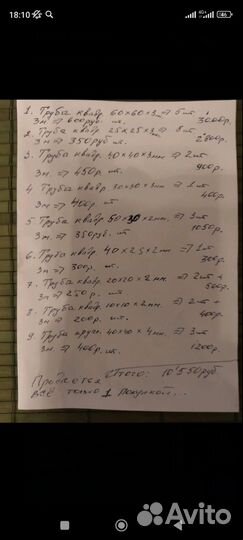 18:10
4G
1. Труба квадр. 60x60x3мм => 5шт
3м => 600руб. шт. 3000р.
2. Труба квадр 25x25x3мм => 8шт
3м => 350руб шт. 2800р.
3. Труба квадр. 40x40x3мм => 2шт
3м. => 450р. шт. 900р.
4 Труба квадр 30x30x3мм => 1шт
3м => 400р шт 400р
5 Труба квадр 50x30x2мм. => 3шт
3м. => 350руб. шт 1050р.
6. Труба квадр 40x25x2мм => 1шт
3м => 300р. шт 300р
7. Труба квадр 20x20x2мм => 2шт
3м => 250р. шт. 500р.
8. Труба квадр 10x10x2мм. => 2шт
3м => 200р. шт. 400р.
9. Труба кругл. 40x40x4мм. => 3шт
3м. => 400р. шт. 1200р.
Итого: 10'550руб
Продается
всё только 1 покупкой...
Avito